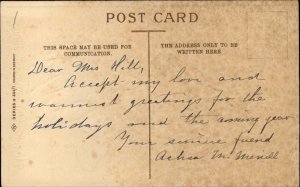 POST CARD
THIS SPACE MAY BE USED FOR
COMMUNICATION.
THE ADDRESS ONLY TO BE
WRITTEN HERE.
Dear Mrs Hill,
Accept my love and
warmest greetings for the
holidays and the coming year
Your sincere friend
Achsa M.